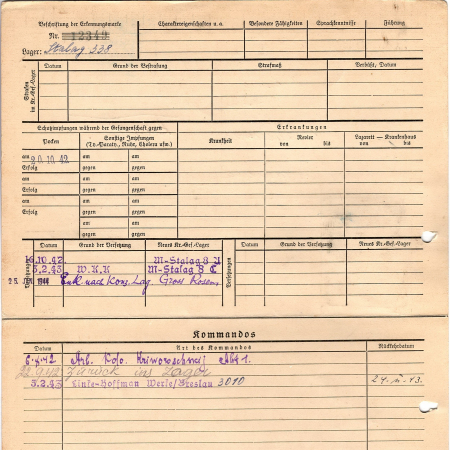 Beschriftung der Erkennungsmarke
Charaktereigenschaften u.a.
Besondere Fähigkeiten
Sprachkenntnisse
Führung
Nr. 12343
Lager: Stalag 338
Strafen in Kr.-Gef.-Lager
Datum
Grund der Bestrafung
Strafmaß
Verbüßt, Datum
Schutzimpfungen während der Gefangenschaft gegen
Erkrankungen
Pocken
Sonstige Impfungen
(Ty.-Paraty., Ruhr, Cholera usw.)
Krankheit
Revier
von bis
Lazarett — Krankenhaus
von bis
am 20.10.42
am
gegen
Erfolg
am
gegen
am
am
gegen
Erfolg
am
gegen
am
am
gegen
Erfolg
am
gegen
am
gegen
Datum
Grund der Versetzung
Neues Kr.-Gef.-Lager
Versetzungen
Datum
Grund der Versetzung
Neues Kr.-Gef.-Lager
16.10.42
M-Stalag 8
3.2.43 M-Stalag 8 C
1944 nach Konz. Lag. Gross Rosen
Kommandos
Datum
Art des Kommandos
Rückkehrdatum
Arb. Kdo.
Zurück ins Lager
3.2.43 Linke-Hoffman Werke/Breslau 3010